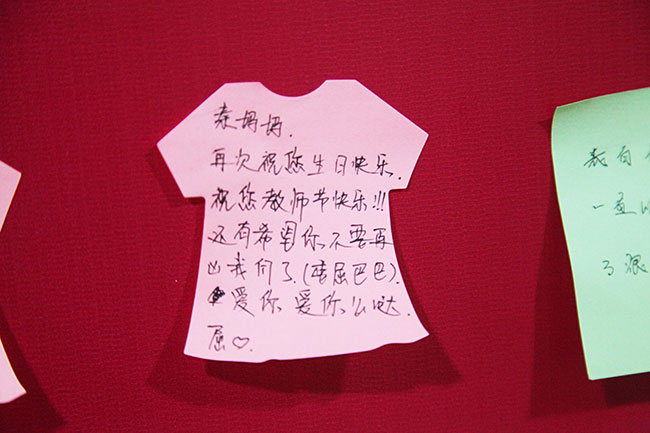 秦妈妈.
再次祝您生日快乐.
祝您教师节快乐!!!
还有希望你不要再
凶我们了.(委屈巴巴).
爱你 爱你么哒.
屈♡.
表白
一直
了